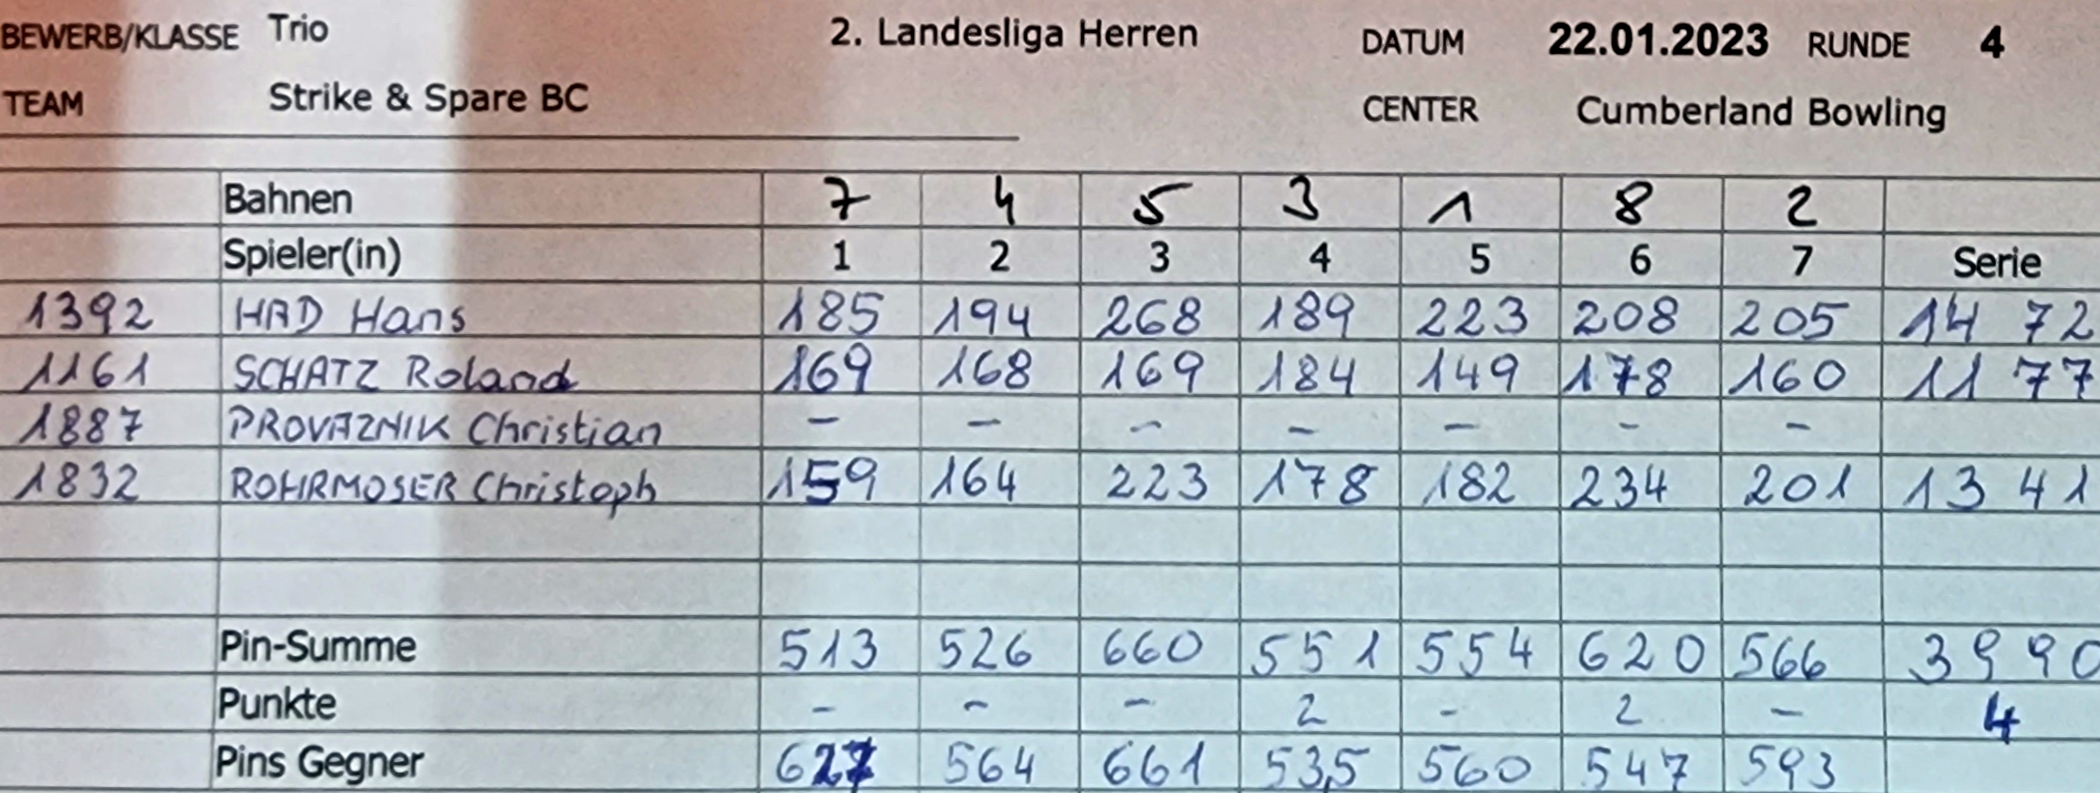 BEWERB/KLASSE Trio 2. Landesliga Herren DATUM 22.01.2023 RUNDE 4
TEAM Strike & Spare BC CENTER Cumberland Bowling
Bahnen 7 4 5 3 1 8 2
Spieler(in) 1 2 3 4 5 6 7 Serie
1392 HAD Hans 185 194 268 189 223 208 205 14 72
1161 SCHATZ Roland 169 168 169 184 149 178 160 11 77
1887 PROVAZNIK Christian - - - - - - -
1832 ROHRMOSER Christoph 159 164 223 178 182 234 201 13 41
Pin-Summe 513 526 660 551 554 620 566 39 90
Punkte - - - 2 - 2 - 4
Pins Gegner 627 564 661 535 560 547 593